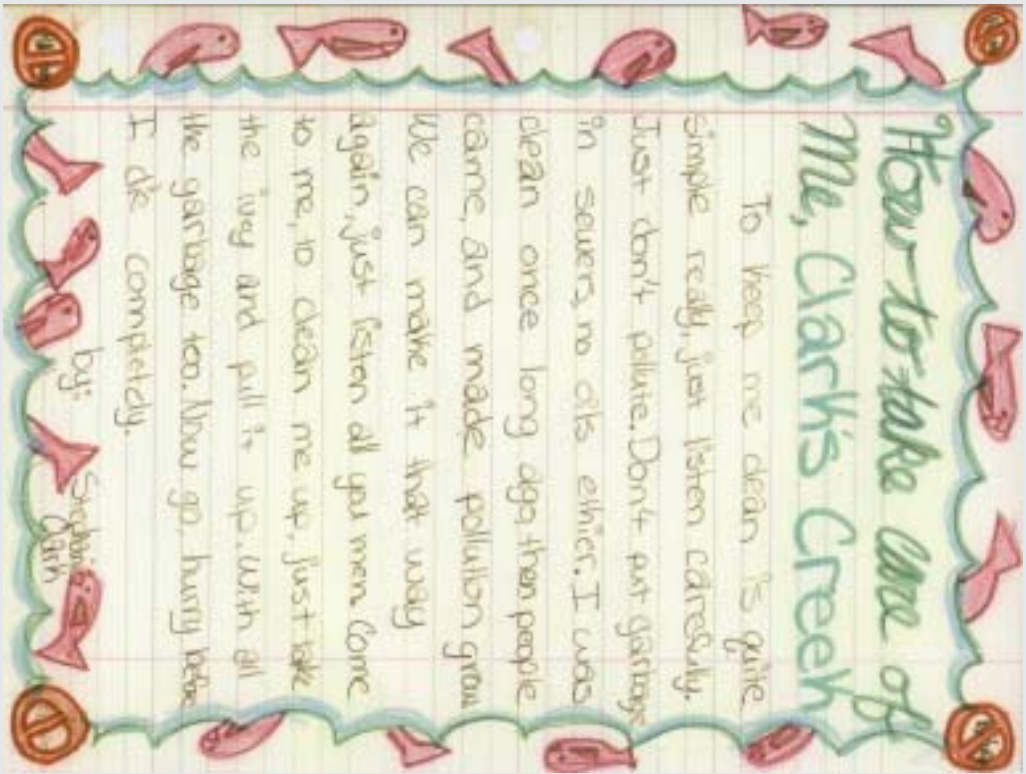 How to take care of
Me, Clark's Creek
To keep me clean is quite
simple really, just listen carefully.
Just don't pollute. Don't put garbage
in sewers, no oils ethier. I was
clean once long ago, then people
came, and made pollution grow
We can make it that way
again, just listen all you men. Come
to me, to clean me up, just take
the ivy and pull it up. With all
the garbage too. Now go, hurry before
I die completely.
by:
Clark